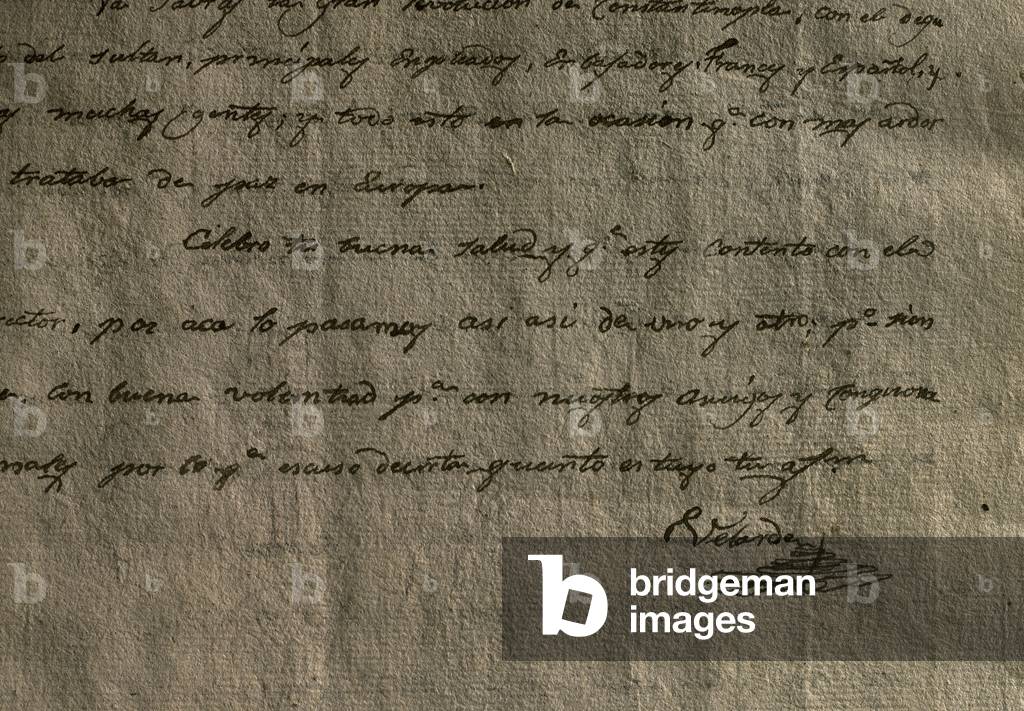 Ya sabras la gran revolucion de Constantinopla, con el degu
del sultan, principales Empleados, Embajadores Frances y Español, y
muchas gentes; y todo esto en la ocasion q.ᵉ con mas ardor
trataba de paz en Europa.
Celebro tu buena salud y q.ᵉ estes contento con el
rector, por aca lo pasamos asi asi de uno y otro; p.º sien
con buena voluntad p.ª con nuestros amigos y
por lo q.ᵉ escuso decirte quanto es tuyo tu af.mo
Velarde
bridgeman
images